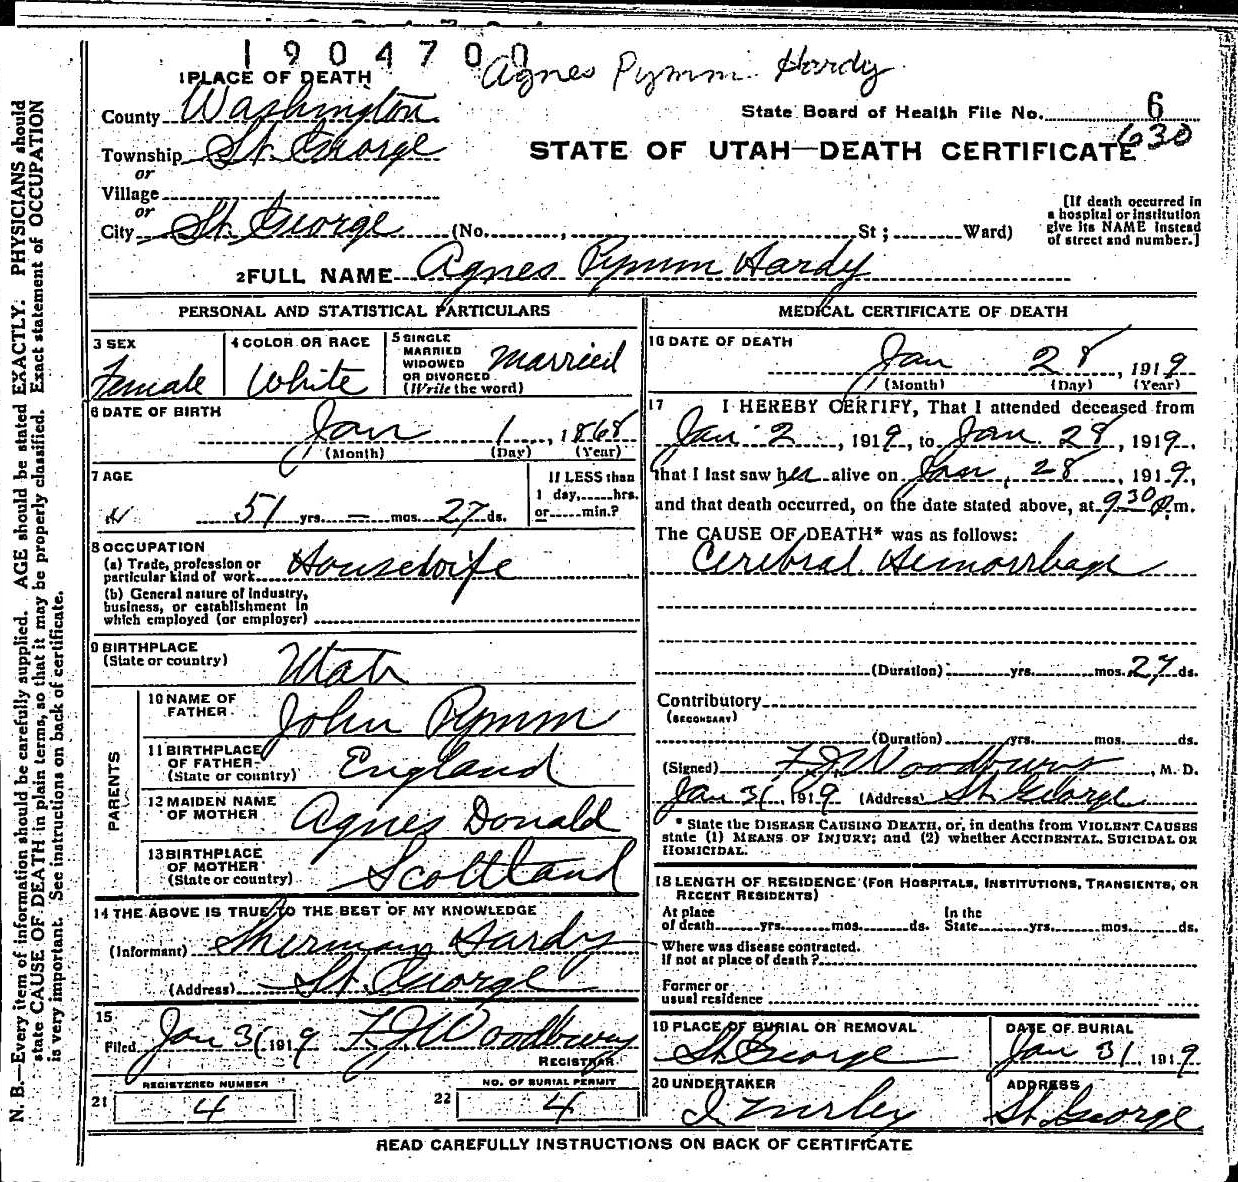 1904700
Agnes Pymm Hardy
1 PLACE OF DEATH
County Washington
State Board of Health File No. 6
630
Township St. George
STATE OF UTAH—DEATH CERTIFICATE
or
Village
or
City St. George (No. , St; Ward)
[If death occurred in
a hospital or institution
give its NAME instead
of street and number.]
2 FULL NAME Agnes Pymm Hardy
PERSONAL AND STATISTICAL PARTICULARS
3 SEX
Female
4 COLOR OR RACE
White
5 SINGLE
MARRIED
WIDOWED
OR DIVORCED
(Write the word)
Married
6 DATE OF BIRTH
Jan 1, 1868
(Month) (Day) (Year)
7 AGE
51 yrs. — mos. 27 ds.
If LESS than
1 day, hrs.
or min.?
8 OCCUPATION
(a) Trade, profession or
particular kind of work Housewife
(b) General nature of industry,
business, or establishment in
which employed (or employer)
9 BIRTHPLACE
(State or country) Utah
PARENTS
10 NAME OF
FATHER John Pymm
11 BIRTHPLACE
OF FATHER
(State or country) England
12 MAIDEN NAME
OF MOTHER Agnes Donald
13 BIRTHPLACE
OF MOTHER
(State or country) Scottland
14 THE ABOVE IS TRUE TO THE BEST OF MY KNOWLEDGE
(Informant) Sherman Hardy
(Address) St. George
15
Filed Jan 31 1919 F J Woodbury
REGISTRAR
REGISTERED NUMBER
21 4
NO. OF BURIAL PERMIT
22 4
MEDICAL CERTIFICATE OF DEATH
16 DATE OF DEATH
Jan 28, 1919
(Month) (Day) (Year)
17 I HEREBY CERTIFY, That I attended deceased from
Jan 2, 1919, to Jan. 28, 1919,
that I last saw her alive on Jan. 28, 1919,
and that death occurred, on the date stated above, at 9 30 P.m.
The CAUSE OF DEATH* was as follows:
Cerebral Hemorrhage
(Duration) yrs. mos. 27 ds.
Contributory
(SECONDARY)
(Duration) yrs. mos. ds.
(Signed) F J Woodbury, M. D.
Jan 31 1919 (Address) St. George
* State the DISEASE CAUSING DEATH, or, in deaths from VIOLENT CAUSES
state (1) MEANS OF INJURY; and (2) whether ACCIDENTAL, SUICIDAL OR
HOMICIDAL.
18 LENGTH OF RESIDENCE (FOR HOSPITALS, INSTITUTIONS, TRANSIENTS, OR
RECENT RESIDENTS)
At place
of death yrs. mos. ds.
In the
State yrs. mos. ds.
Where was disease contracted,
if not at place of death?
Former or
usual residence
19 PLACE OF BURIAL OR REMOVAL
St George
DATE OF BURIAL
Jan 31 1919
20 UNDERTAKER
ADDRESS
St. George
READ CAREFULLY INSTRUCTIONS ON BACK OF CERTIFICATE
N. B.—Every item of information should be carefully supplied. AGE should be stated EXACTLY. PHYSICIANS should
state CAUSE OF DEATH in plain terms, so that it may be properly classified. Exact statement of OCCUPATION
is very important. See instructions on back of certificate.